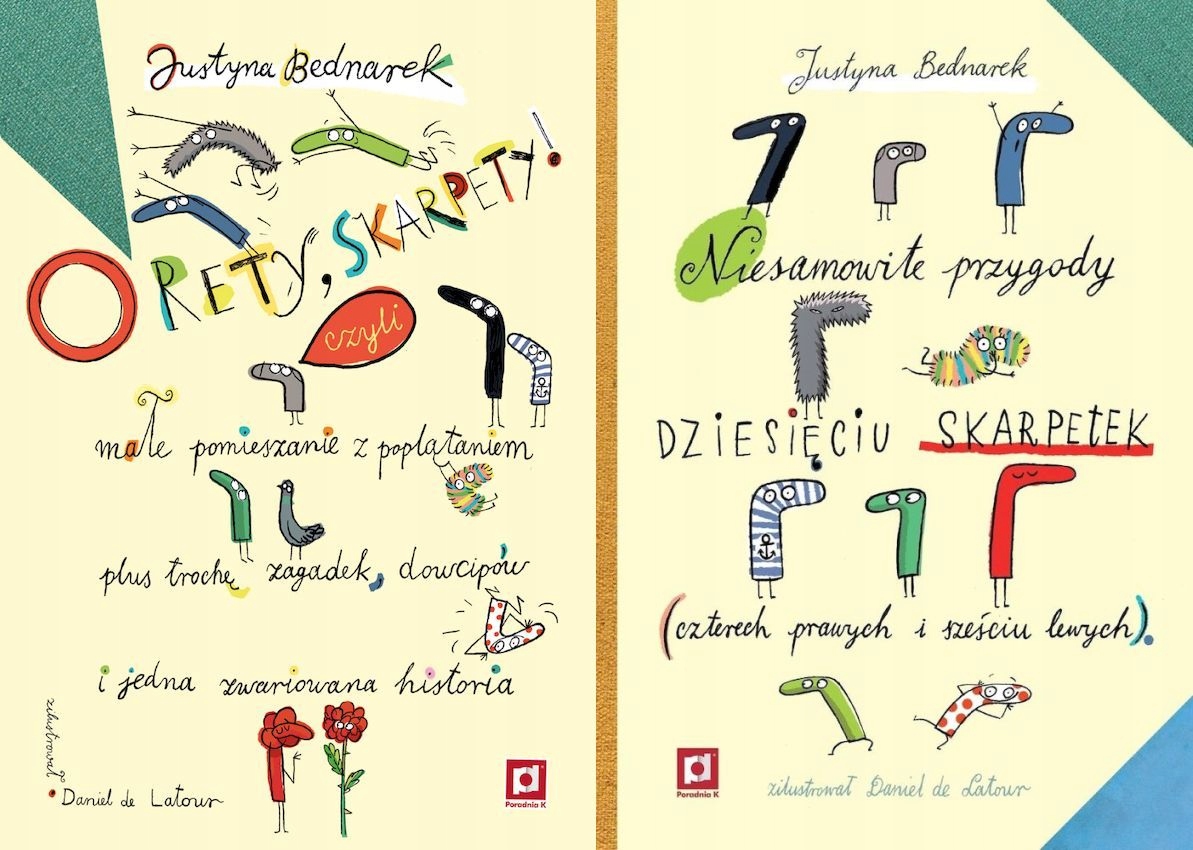 Justyna Bednarek
O RETY, SKARPETY!
czyli
małe pomieszanie z poplątaniem
plus trochę zagadek, dowcipów
i jedna zwariowana historia
zilustrował
Daniel de Latour
Poradnia K
Justyna Bednarek
Niesamowite przygody
DZIESIĘCIU SKARPETEK
(czterech prawych i sześciu lewych).
Poradnia K
zilustrował Daniel de Latour